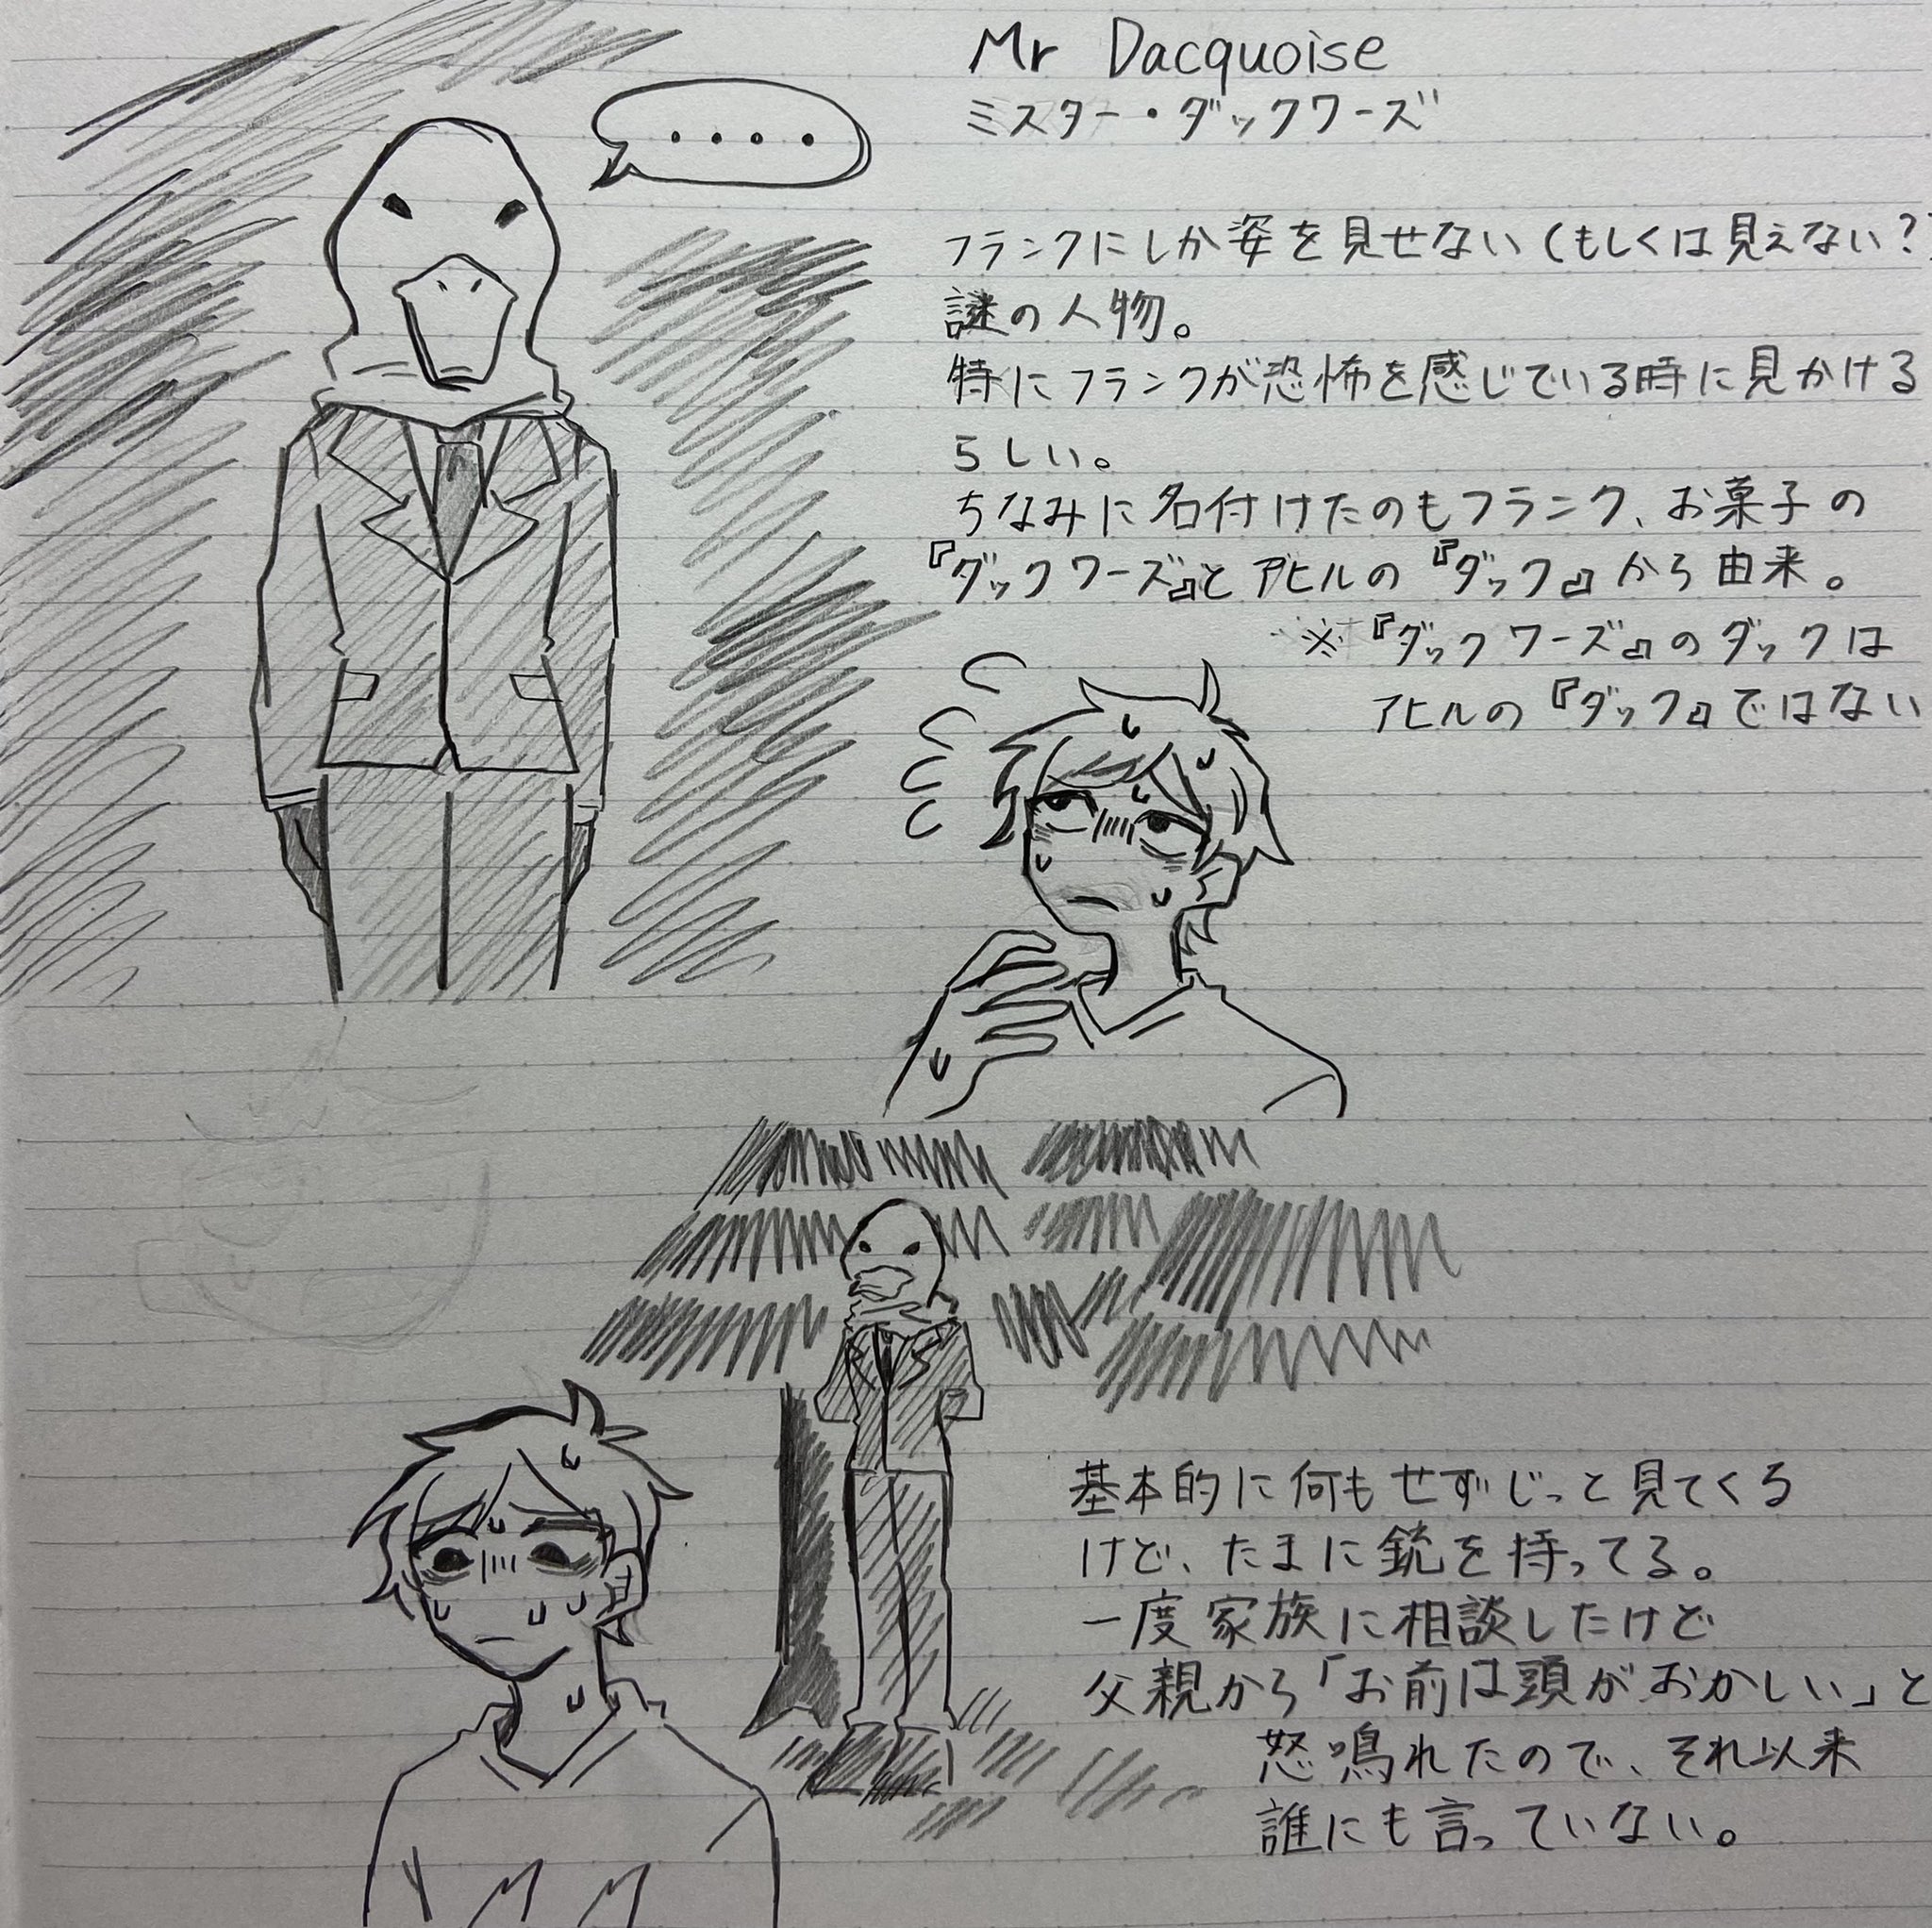 Mr Dacquoise
ミスター・ダックワーズ
・・・・
フランクにしか姿を見せない(もしくは見えない?)
謎の人物。
特にフランクが恐怖を感じている時に見かける
らしい。
ちなみに名付けたのもフランク、お菓子の
『ダックワーズ』とアヒルの『ダック』から由来。
※『ダックワーズ』のダックは
アヒルの『ダック』ではない
基本的に何もせずじっと見てくる
けど、たまに銃を持ってる。
一度家族に相談したけど
父親から「お前は頭がおかしい」と
怒鳴れたので、それ以来
誰にも言っていない。